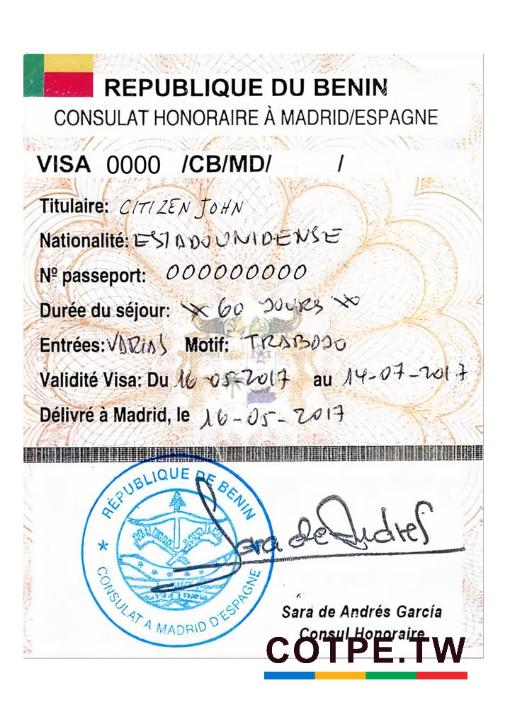 REPUBLIQUE DU BENIN
CONSULAT HONORAIRE À MADRID/ESPAGNE
VISA 0000 /CB/MD/ /
Titulaire: CITIZEN JOHN
Nationalité: ESTADOUNIDENSE
Nº passeport: 000000000
Durée du séjour: 60 JOURS
Entrées: VARIAS Motif: TRABAJO
Validité Visa: Du 16-05-2017 au 14-07-2017
Délivré à Madrid, le 16-05-2017
RÉPUBLIQUE DE BENIN
* CONSULAT A MADRID D'ESPAGNE
Sara de Andres
Sara de Andrés García
Consul Honoraire
COTPE.TW